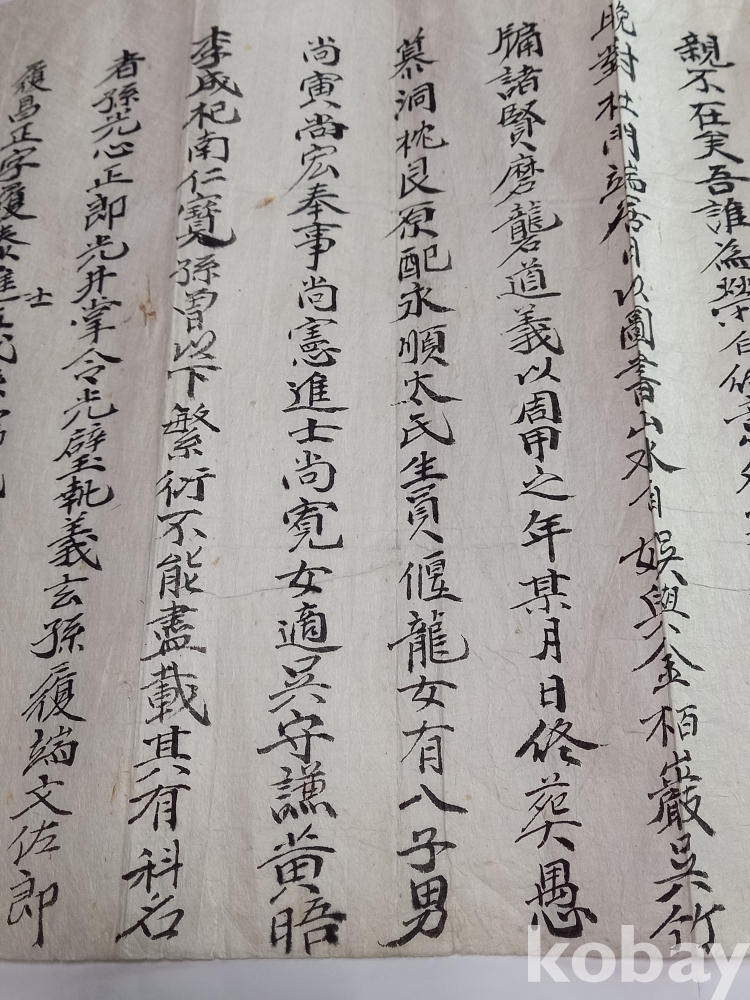 親不在矣吾誰為榮自修意外
晩對杜門端居日以圖書山水自娛與金栢巖吳竹
牖諸賢磨礱道義以周甲之年某月日終葬愚
慕洞枕艮原配永順太氏生員偃龍女有八子男
尚寅尚宏奉事尚憲進士尚寬女適吳守謙黄晤
李成杞南仁寶孫曾以下繁衍不能盡載其有科名
者孫光心正郎光井掌令光璧執義玄孫復端文佐郎
履昌正字履泰進士
kobay